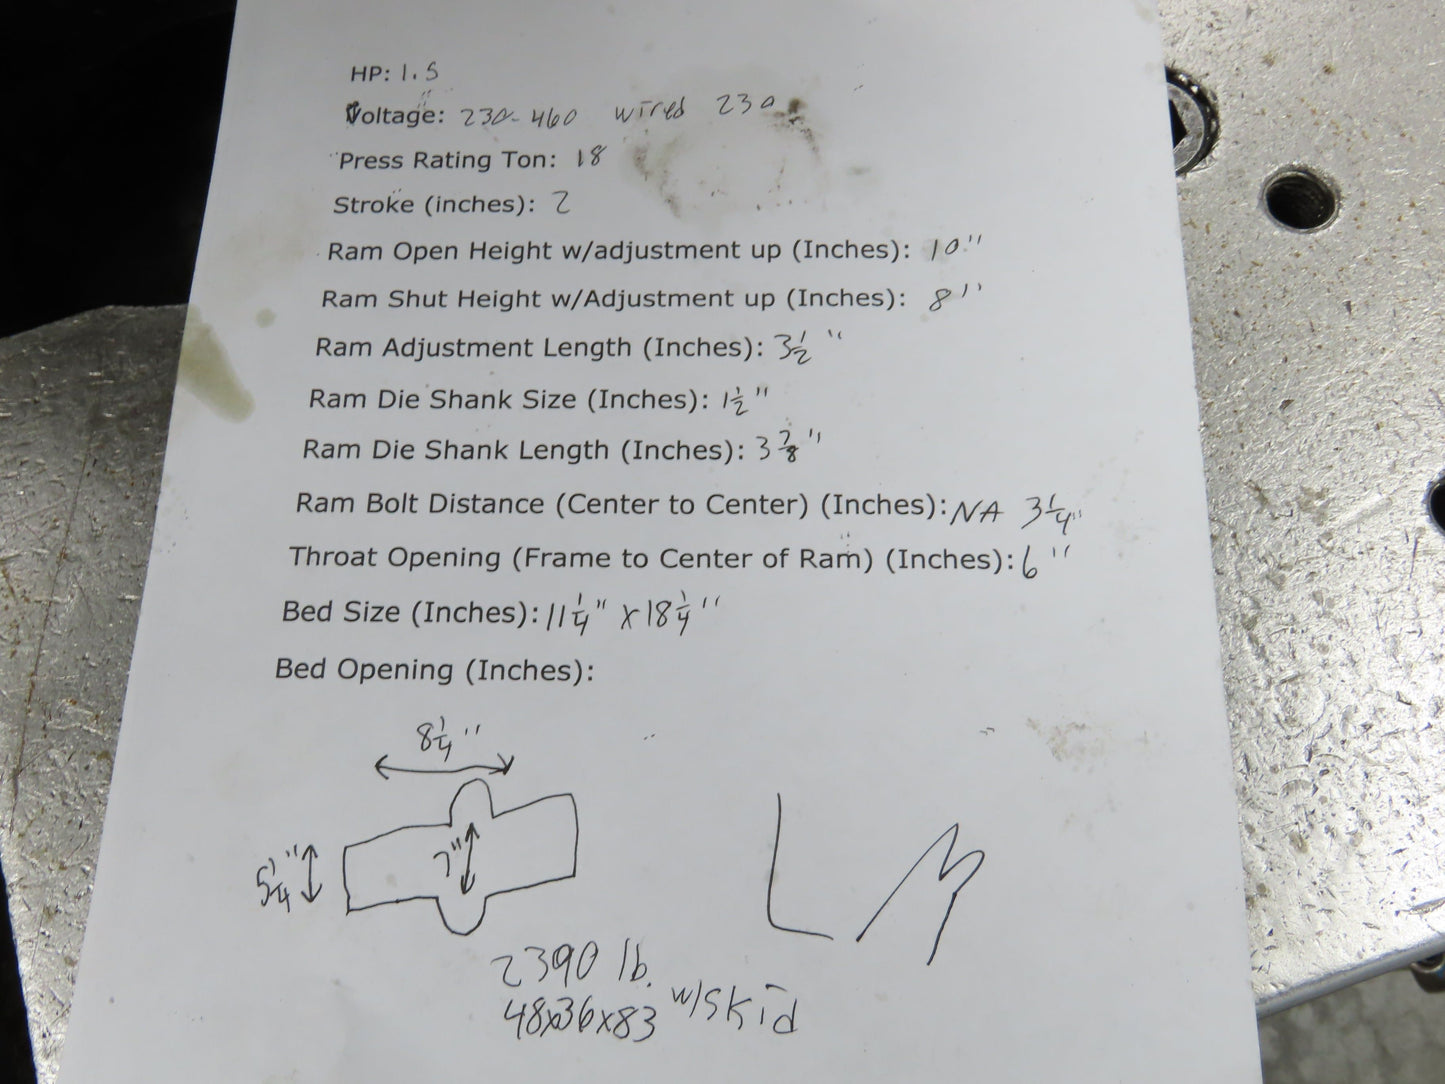 HP: 1.5
Voltage: 230-460 wired 230
Press Rating Ton: 18
Stroke (inches): 2
Ram Open Height w/adjustment up (Inches): 10"
Ram Shut Height w/Adjustment up (Inches): 8"
Ram Adjustment Length (Inches): 3 1/2"
Ram Die Shank Size (Inches): 1 1/2"
Ram Die Shank Length (Inches): 3 7/8"
Ram Bolt Distance (Center to Center) (Inches): NA 3 1/4"
Throat Opening (Frame to Center of Ram) (Inches): 6"
Bed Size (Inches): 11 1/4" x 18 1/4"
Bed Opening (Inches):
8 1/4"
5 1/4"
7"
LM
2390 lb.
48x36x83 w/skid